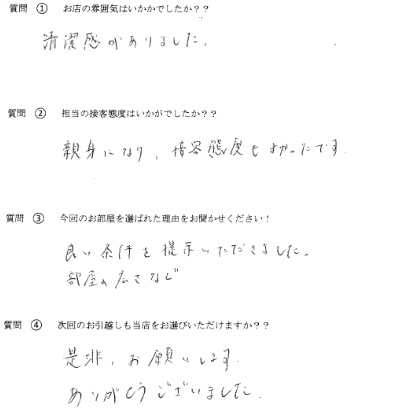 質問 ① お店の雰囲気はいかかでしたか？？
清潔感がありました。
質問 ② 担当の接客態度はいかがでしたか？？
親身になり、接客態度もよかったです。
質問 ③ 今回のお部屋を選ばれた理由をお聞かせください！
良い条件を提示いただきました。
部屋の広さなど
質問 ④ 次回のお引越しも当店をお選びいただけますか？？
是非、お願いします。
ありがとうございました。